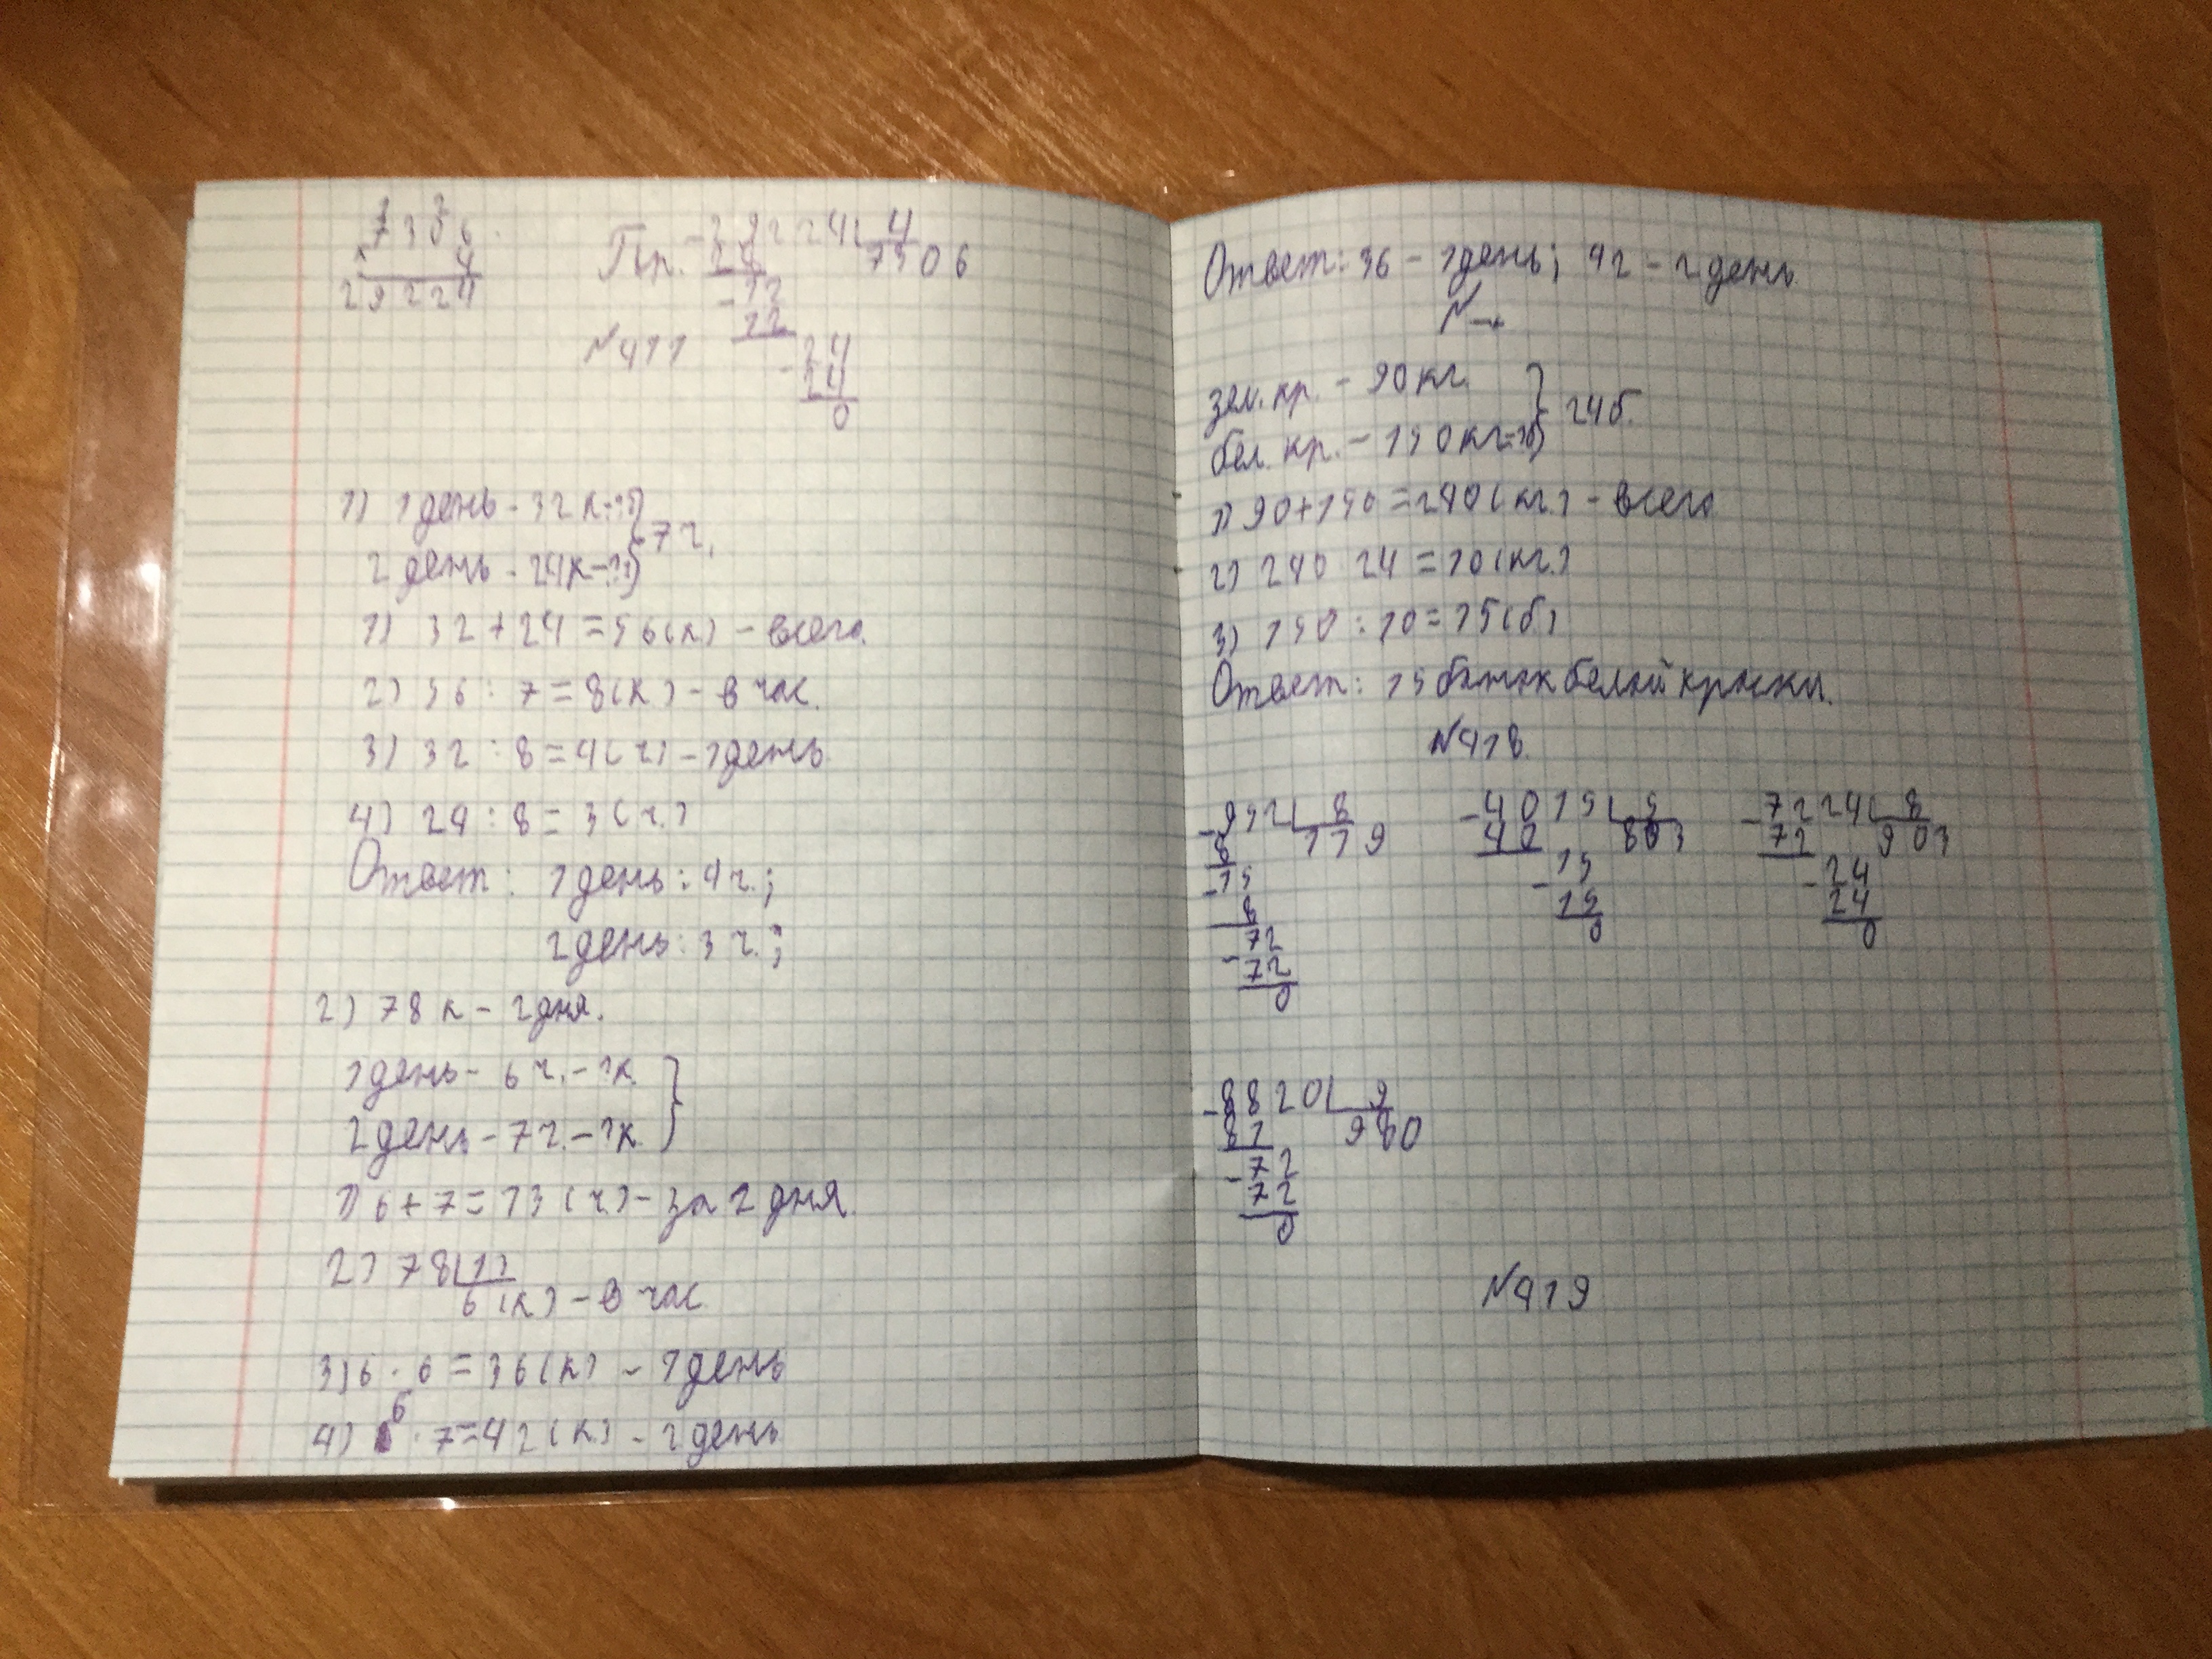 7306
× 4
29224
Пр. - 29224 | 4
28 7306
- 12
12
- 24
24
0
№411
1) 1 день - 32 к - ?ч
2 день - 24 к - ?ч } 7 ч.
1) 32 + 24 = 56 (к) - всего.
2) 56 : 7 = 8 (к) - в час.
3) 32 : 8 = 4 (ч) - 1 день
4) 24 : 8 = 3 (ч.)
Ответ: 1 день: 4 ч.;
2 день: 3 ч.;
2) 78 к - 2 дня.
1 день - 6 ч. - ?к.
2 день - 7 ч. - ?к. }
1) 6 + 7 = 13 (ч) - за 2 дня.
2) 78 | 13
6 (к) - в час
3) 6 · 6 = 36 (к) - 1 день
4) 6 · 7 = 42 (к) - 2 день
Ответ: 36 - 1 день; 42 - 2 день.
зел. кр. - 90 кг.
бел. кр. - 150 кг - ?б } 24 б.
1) 90 + 150 = 240 (кг.) - всего
2) 240 24 = 10 (кг.)
3) 150 : 10 = 15 (б)
Ответ: 15 банок белой краски.
№418.
- 952 | 8
8 119
- 15
8
- 72
72
0
- 4015 | 5
40 803
- 15
15
0
- 7224 | 8
72 903
- 24
24
0
- 8820 | 9
81 980
- 72
72
0
№419